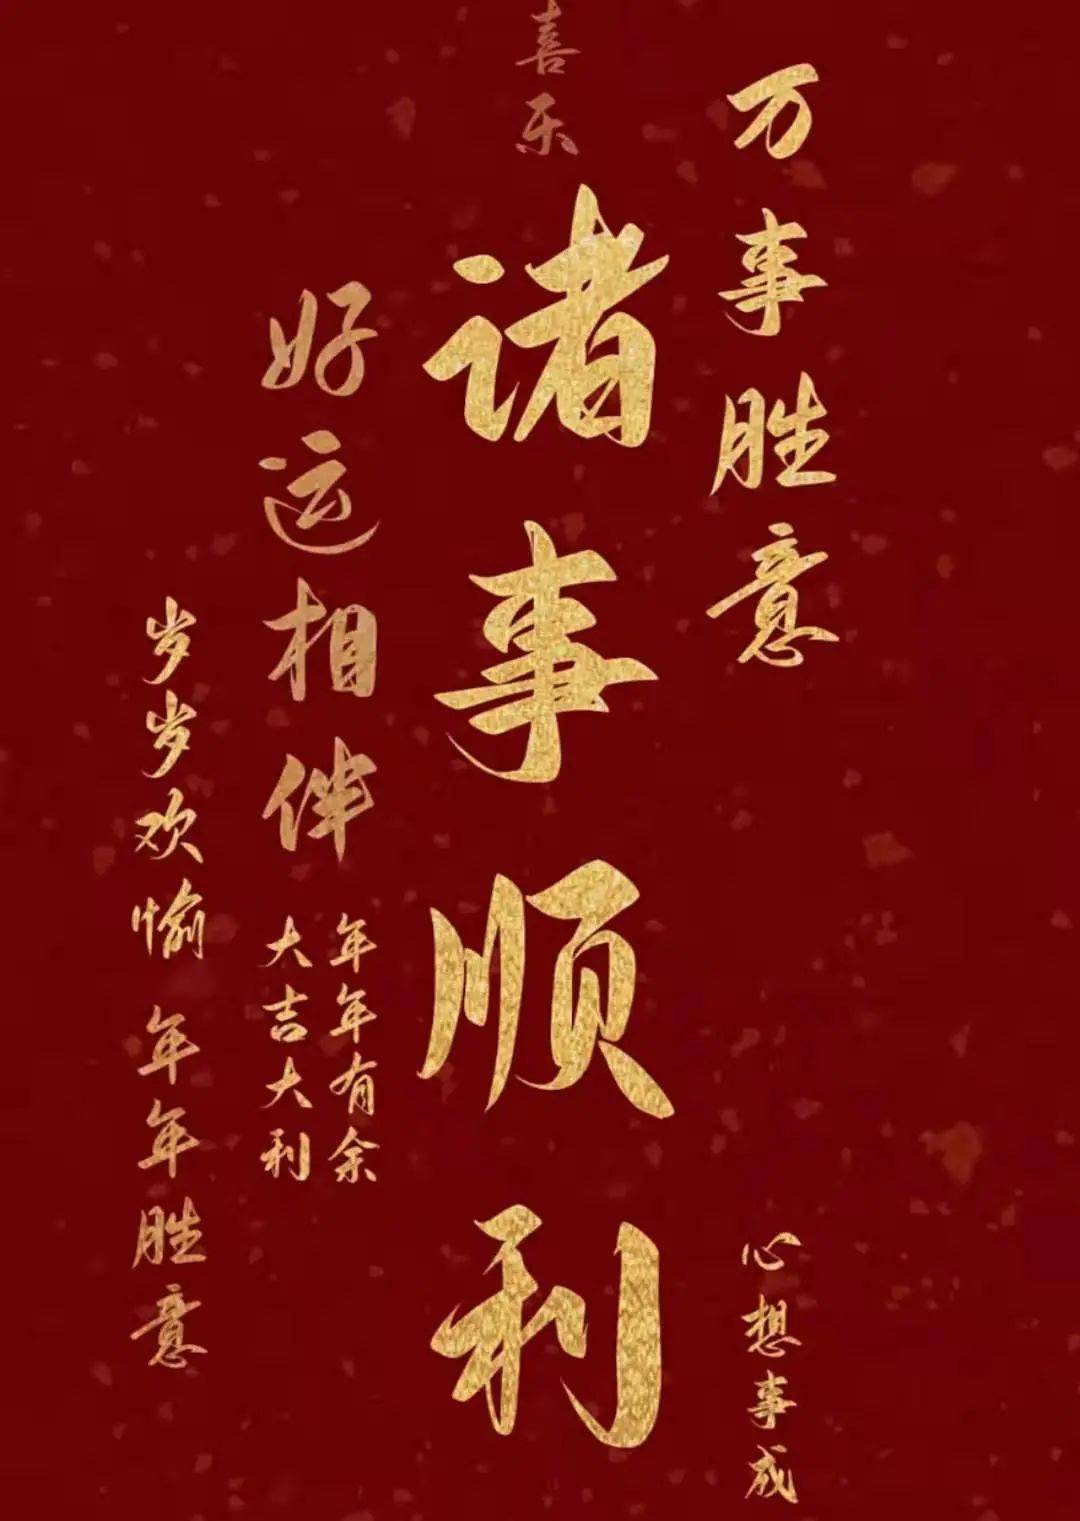 万事胜意
心想事成
喜乐
诸事顺利
好运相伴
年年有余
大吉大利
岁岁欢愉 年年胜意